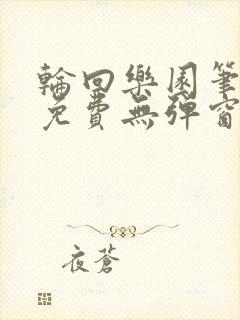 輪回樂園筆
免費無彈窗
夜蒼